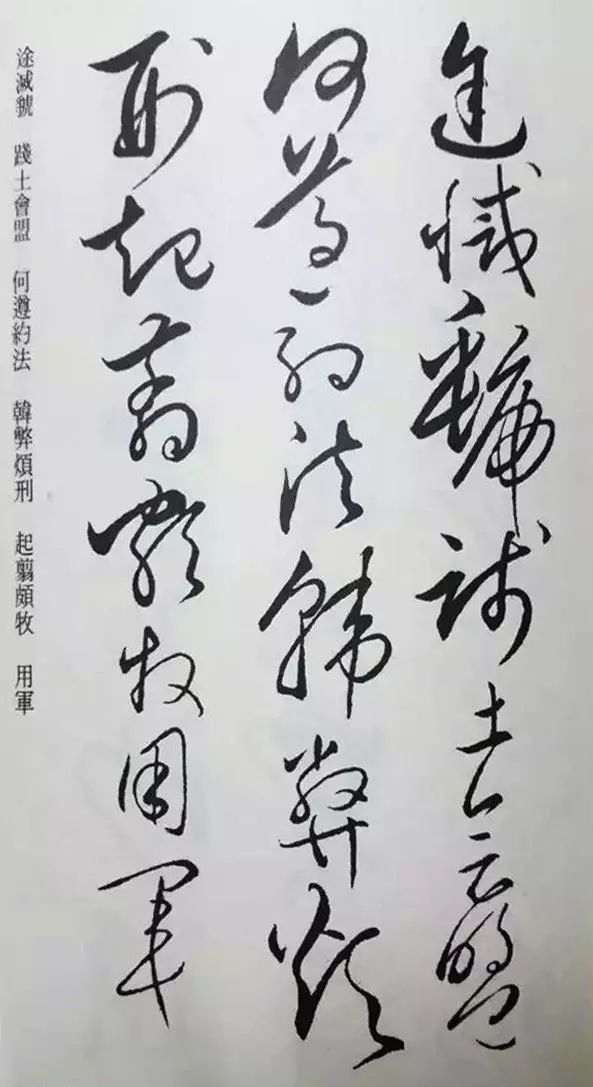 途滅虢踐土會盟
何遵約法韓弊煩
刑起翦頗牧用軍
途滅虢 踐土會盟 何遵約法 韓弊煩刑 起翦頗牧 用軍